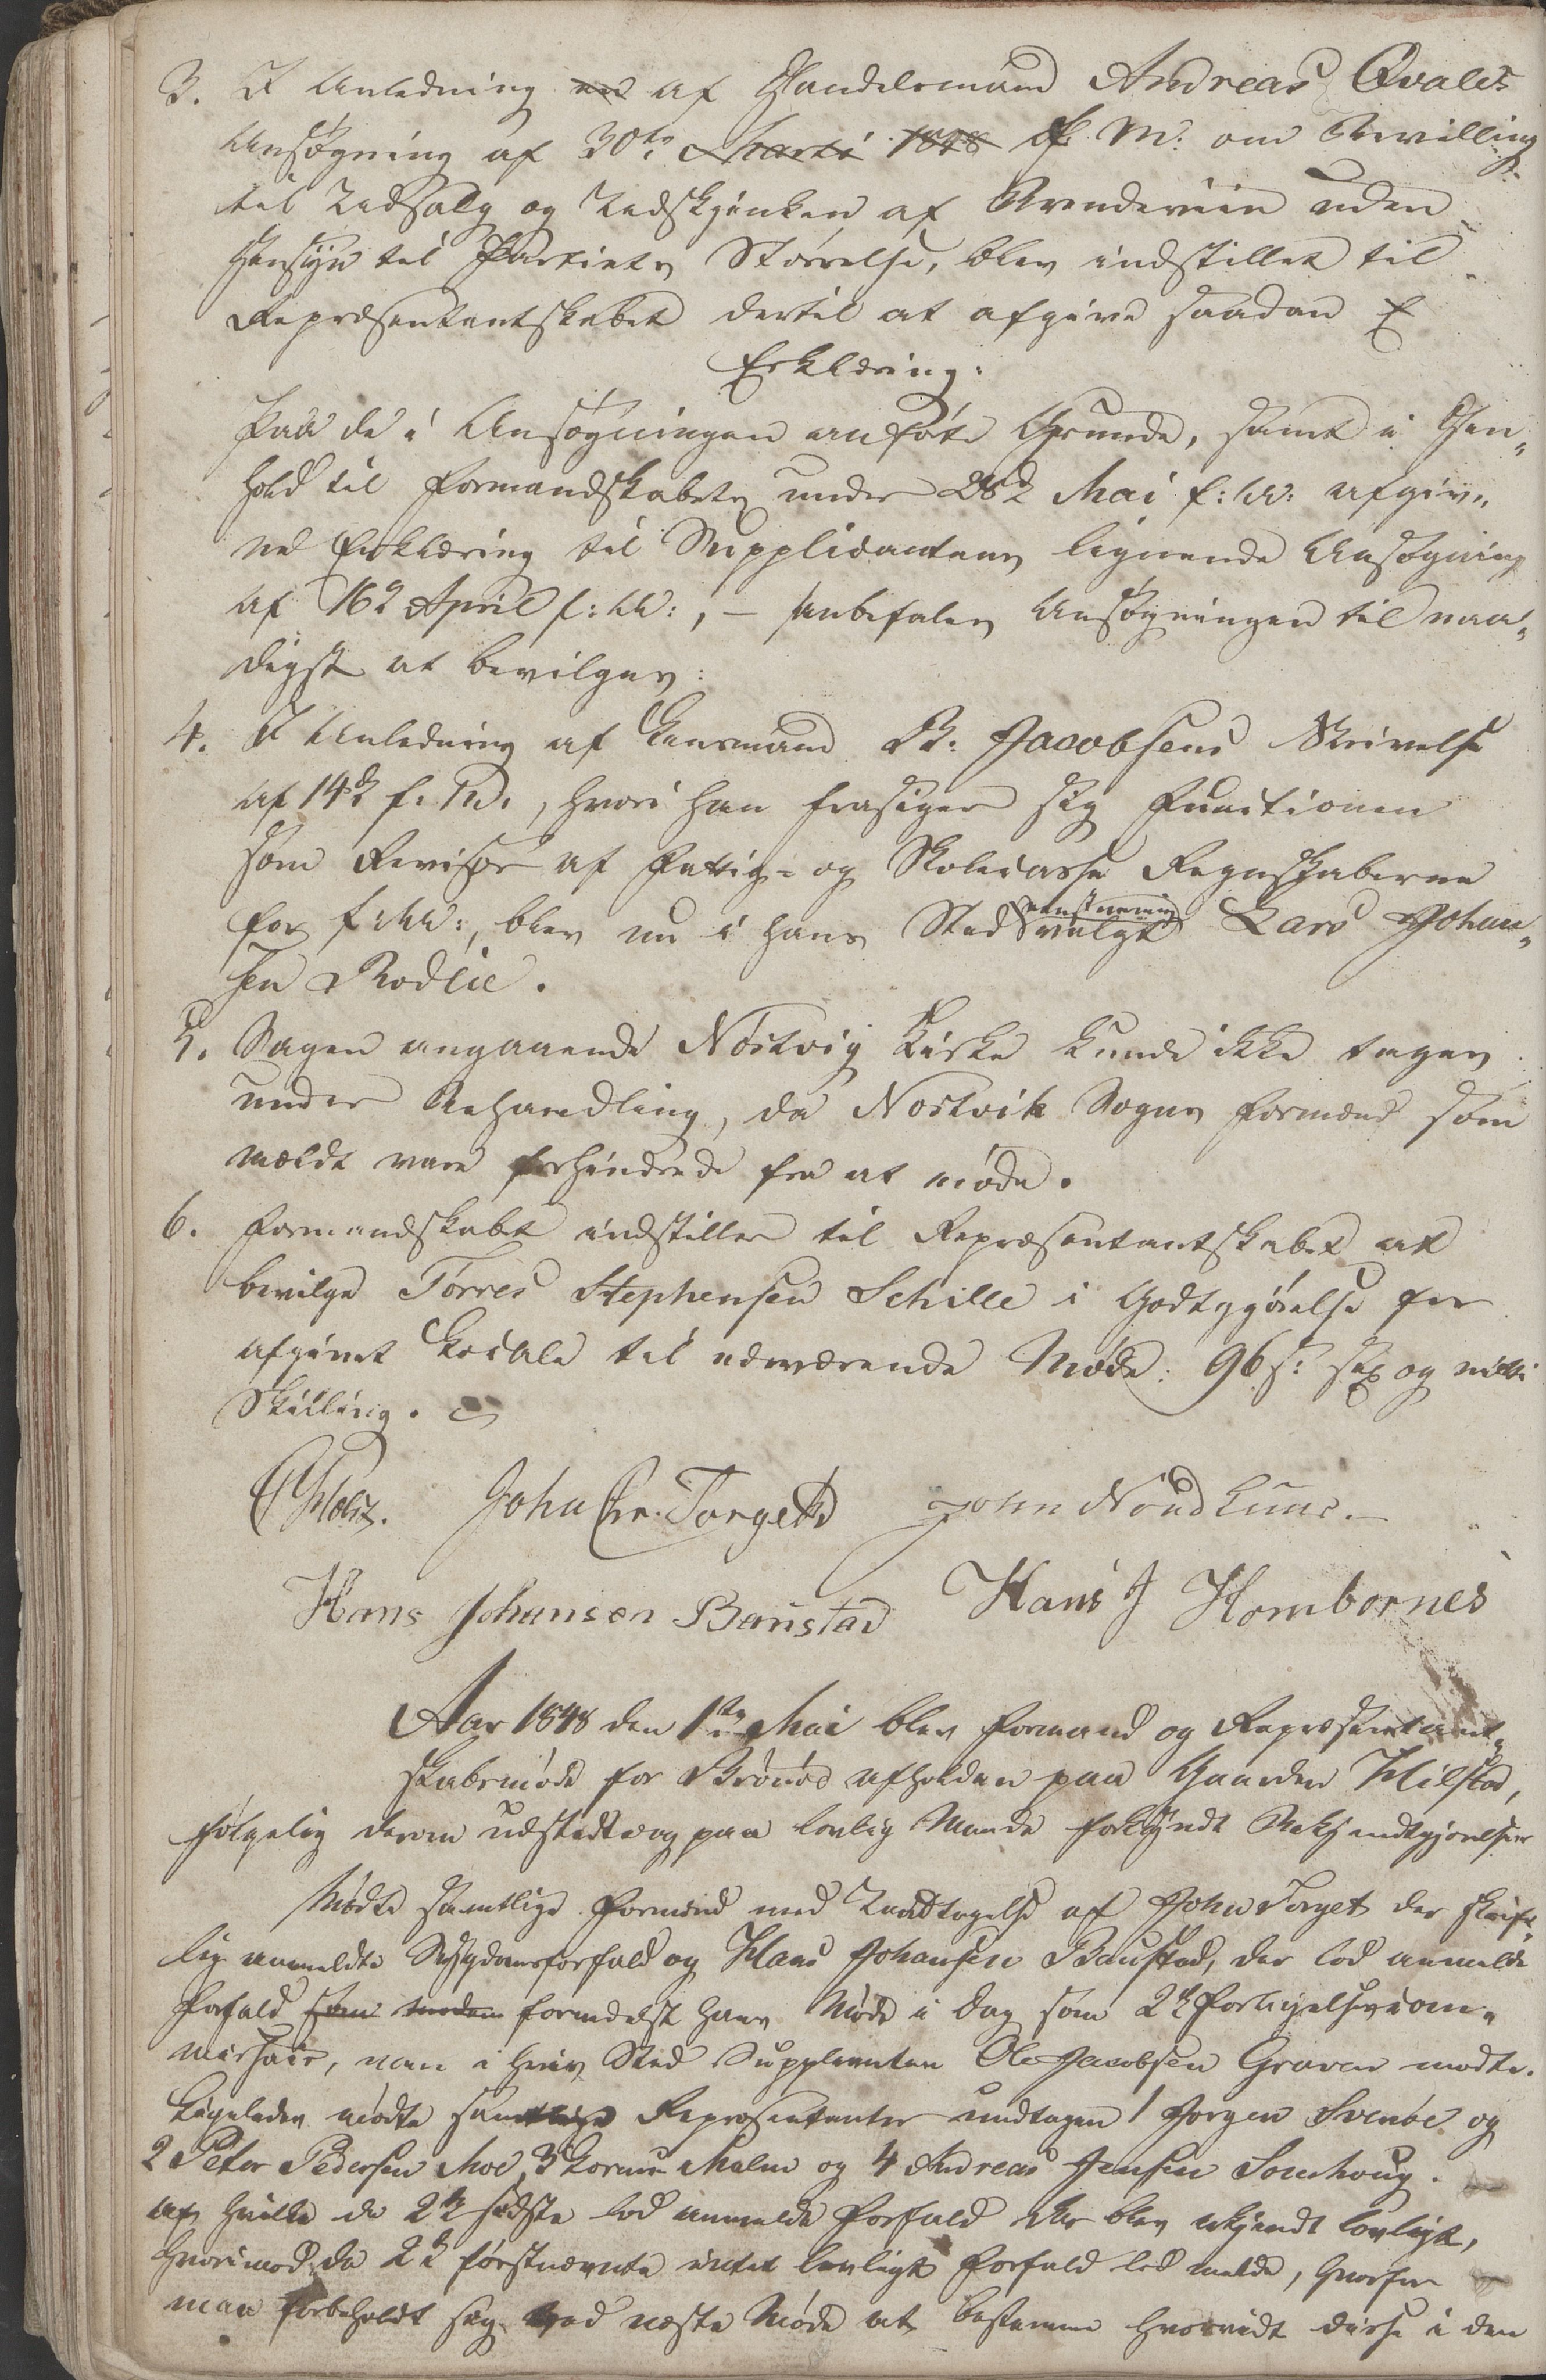 3. I Anledning af Handelsmand Andreas Qvales
Ansøgning af 30te Martii 1848 d: M: om Bevilling
til Udsalg og Udskjenken af Brendeviin uden
Hensyn til Partiets Størrelse, blev indstillet til
Repræsentantskabet dertil at afgive saadan E
Erklæring:
Paa de i Ansøgningen anførte Grunde, samt i Hen„
hold til Formandskabets under 28d Mai f: A: afgiv„
ne Erklæring til Supplicantens lignende Ansøgning
af 16d April f: A:, – anbefales Ansøgningen til naa„
digst at bevilges:
4. I Anledning af Lensmand B: Jacobsens Skrivelse
af 14d f. M., hvori han frasiger sig Functionen
som Revisor af Fattig- og Skolecasse Regnskaberne
for f: A:, blev nu i hans Sted eenstemmig valgt Lars Johan„
sen Rodlie.
5. Sagen angaaende Nøstvig Kirke kunde ikke tages
under Behandling, da Nøstvik Sogns Formænd som
meldt vare forhindrede fra at møde.
6. Formandskabet indstiller til Repræsentantskabet at
bevilge Torres Stephensen Schille i Godtgjørelse for
afgivet Locale til nærværende Møde: 96 s: sex og nitti
Skilling.
John Chr. Torget John Nordhuus.
Hans Johansen Baustad Hans J Hombornes
Aar 1848 den 1ste Mai blev Formand og Repræsentant„
skabsmøde for Brønø afholden paa Gaarden Tilstad,
følgelig derom udstedte og paa lovlig Maade forkyndt Bekjendtgjørelser
Mødte samtlige Formænd med Undtagelse af John Torget der skrift„
lig anmeldte Sygdomsforfald og Hans Johansen Baustad, der lod anmelde
Forfald formedelst hans Møde i Dag som 2d Forligelsescom„
missair, men i hvis Sted Supplianten Ole Jacobsen Graven mødte.
Ligeledes mødte samtlige Repræsentanter undtagen 1 Jørgen Svenøe og
2 Peter Pedersen Moe, 3 Malm og 4 Andreas Jensen Somhoug.
af hvilke de 2d sidste lod anmelde Forfald der blev erkjendt lovligt,
hvorimod de 2d førstnævnte intet lovligt Forfald lod melde, hvorfor
man forbeholdt sig ved næste Møde at bestemme hvorvidt disse i den